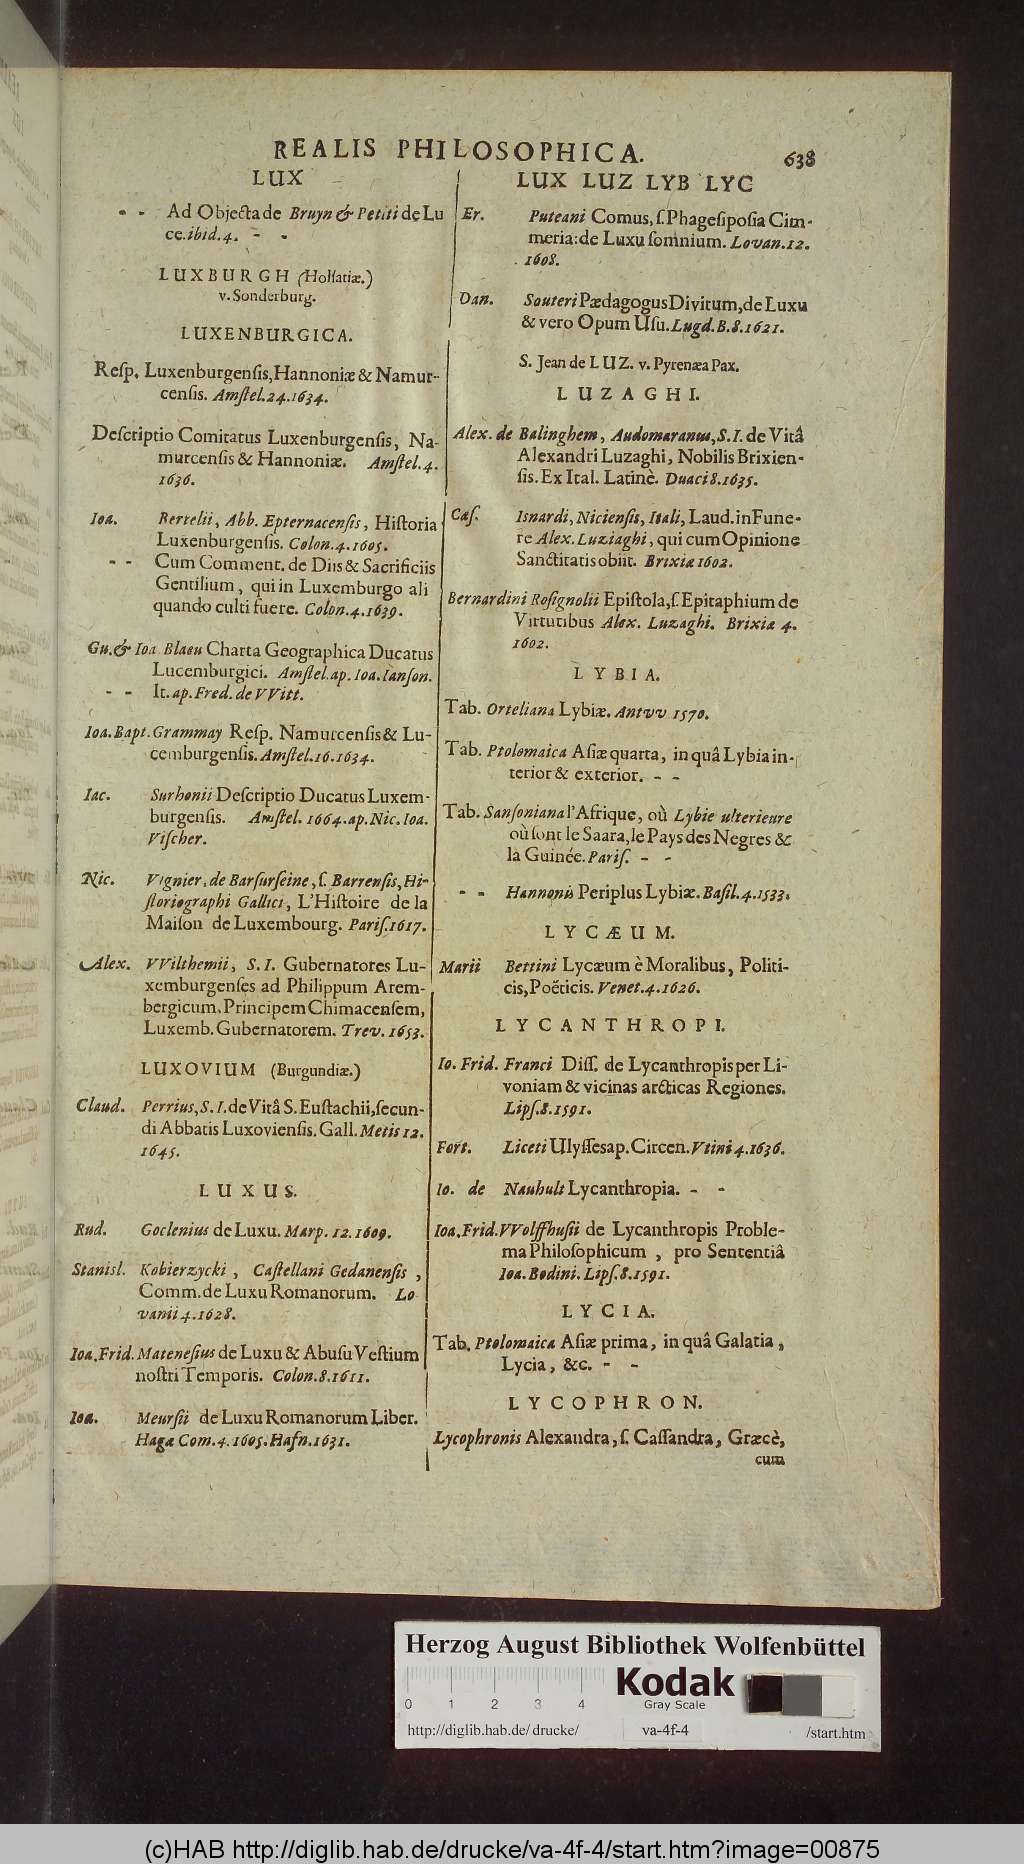 REALIS PHILOSOPHICA.
638
LUX
- - Ad Objecta de Bruyn & Petiti de Lu
ce. ibid. 4. - -
LUXBURGH (Holſatiæ.)
v. Sonderburg.
LUXENBURGICA.
Reſp. Luxenburgenſis, Hannoniæ & Namur-
cenſis. Amſtel. 24. 1634.
Deſcriptio Comitatus Luxenburgenſis, Na-
murcenſis & Hannoniæ. Amſtel. 4.
1636.
Ioa. Bertelii, Abb. Epternacenſis, Hiſtoria
Luxenburgenſis. Colon. 4. 1605.
- - Cum Comment. de Diis & Sacrificiis
Gentilium, qui in Luxemburgo ali
quando culti fuere. Colon. 4. 1639.
Gu. & Ioa Blaeu Charta Geographica Ducatus
Lucemburgici. Amſtel. ap. Ioa. Ianſon.
- - It. ap. Fred. de VVitt.
Ioa. Bapt. Grammay Reſp. Namurcenſis & Lu-
cemburgenſis. Amſtel. 16. 1634.
Iac. Surhonii Deſcriptio Ducatus Luxem-
burgenſis. Amſtel. 1664. ap. Nic. Ioa.
Viſcher.
Nic. Vignier, de Barſurſeine, ſ. Barrenſis, Hi-
ſtoriographi Gallici, L'Hiſtoire de la
Maiſon de Luxembourg. Pariſ. 1617.
Alex. VVilthemii, S. I. Gubernatores Lu-
xemburgenſes ad Philippum Arem-
bergicum, Principem Chimacenſem,
Luxemb. Gubernatorem. Trev. 1653.
LUXOVIUM (Burgundiæ.)
Claud. Perrius, S. I. de Vitâ S. Euſtachii, ſecun-
di Abbatis Luxovienſis. Gall. Metis 12.
1645.
LUXUS.
Rud. Goclenius de Luxu. Marp. 12. 1609.
Stanisl. Kobierzycki, Caſtellani Gedanenſis,
Comm. de Luxu Romanorum. Lo
vanii 4. 1628.
Ioa. Frid. Mateneſius de Luxu & Abuſu Veſtium
noſtri Temporis. Colon. 8. 1611.
Ioa. Meurſii de Luxu Romanorum Liber.
Haga Com. 4. 1605. Hafn. 1631.
LUX LUZ LYB LYC
Er. Puteani Comus, ſ. Phageſipoſia Cim-
meria: de Luxu ſomnium. Lovan. 12.
1608.
Dan. Souteri Pædagogus Divitum, de Luxu
& vero Opum Uſu. Lugd. B. 8. 1621.
S. Jean de LUZ. v. Pyrenæa Pax.
LUZAGHI.
Alex. de Balinghem, Audomaranus, S. I. de Vitâ
Alexandri Luzaghi, Nobilis Brixien-
ſis. Ex Ital. Latinè. Duaci 8. 1635.
Caſ. Isnardi, Nicienſis, Itali, Laud. in Fune-
re Alex. Luziaghi, qui cum Opinione
Sanctitatis obiit. Brixia 1602.
Bernardini Roſignolii Epiſtola, ſ. Epitaphium de
Virtutibus Alex. Luzaghi. Brixia 4.
1602.
LYBIA.
Tab. Orteliana Lybiæ. Antvv 1570.
Tab. Ptolomaica Aſiæ quarta, in quâ Lybia in-
terior & exterior. - -
Tab. Sanſoniana l'Afrique, où Lybie ulterieure
où ſont le Saara, le Pays des Negres &
la Guinée. Pariſ. - -
- - Hannonis Periplus Lybiæ. Baſil. 4. 1533.
LYCÆUM.
Marii Bettini Lycæum è Moralibus, Politi-
cis, Poëticis. Venet. 4. 1626.
LYCANTHROPI.
Io. Frid. Franci Diſſ. de Lycanthropis per Li-
voniam & vicinas arcticas Regiones.
Lipſ. 8. 1591.
Fort. Liceti Ulyſſes ap. Circen. Vtini 4. 1636.
Io. de Nauhult Lycanthropia. - -
Ioa. Frid. VVolffhuſii de Lycanthropis Proble-
ma Philoſophicum, pro Sententiâ
Ioa. Bodini. Lipſ. 8. 1591.
LYCIA.
Tab. Ptolomaica Aſiæ prima, in quâ Galatia,
Lycia, &c. - -
LYCOPHRON.
Lycophronis Alexandra, ſ. Caſſandra, Græcè,
cum
Herzog August Bibliothek Wolfenbüttel
0 1 2 3 4
Kodak
Gray Scale
http://diglib.hab.de/drucke/ va-4f-4 /start.htm
(c)HAB http://diglib.hab.de/drucke/va-4f-4/start.htm?image=00875